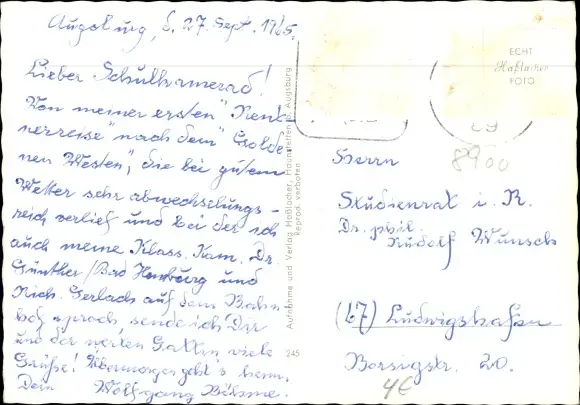 Augsburg, d. 27. Sept. 1965.
Lieber Schulkamerad!
Von meiner ersten "Rent-
nerreise" nach dem "Golde-
nen Westen", die bei gutem
Wetter sehr abwechslungs-
reich verlief und bei der ich
auch meine Klass. Kam. Dr.
Günther/Bad Homburg und
Rich. Gerlach auf dem Bahn
hof sprach, sende ich Dir
und der werten Gattin viele
Grüße! Übermorgen geht's heim.
Dein Wolfgang Böhme.
Aufnahme und Verlag Haßlacher, Haunstetten b. Augsburg
Reprod. verboten
245
ECHT
Haßlacher
FOTO
8900
Herrn
Studienrat i. R.
Dr. phil.
Rudolf Wunsch
(67) Ludwigshafen
Borsigstr. 20.
4€